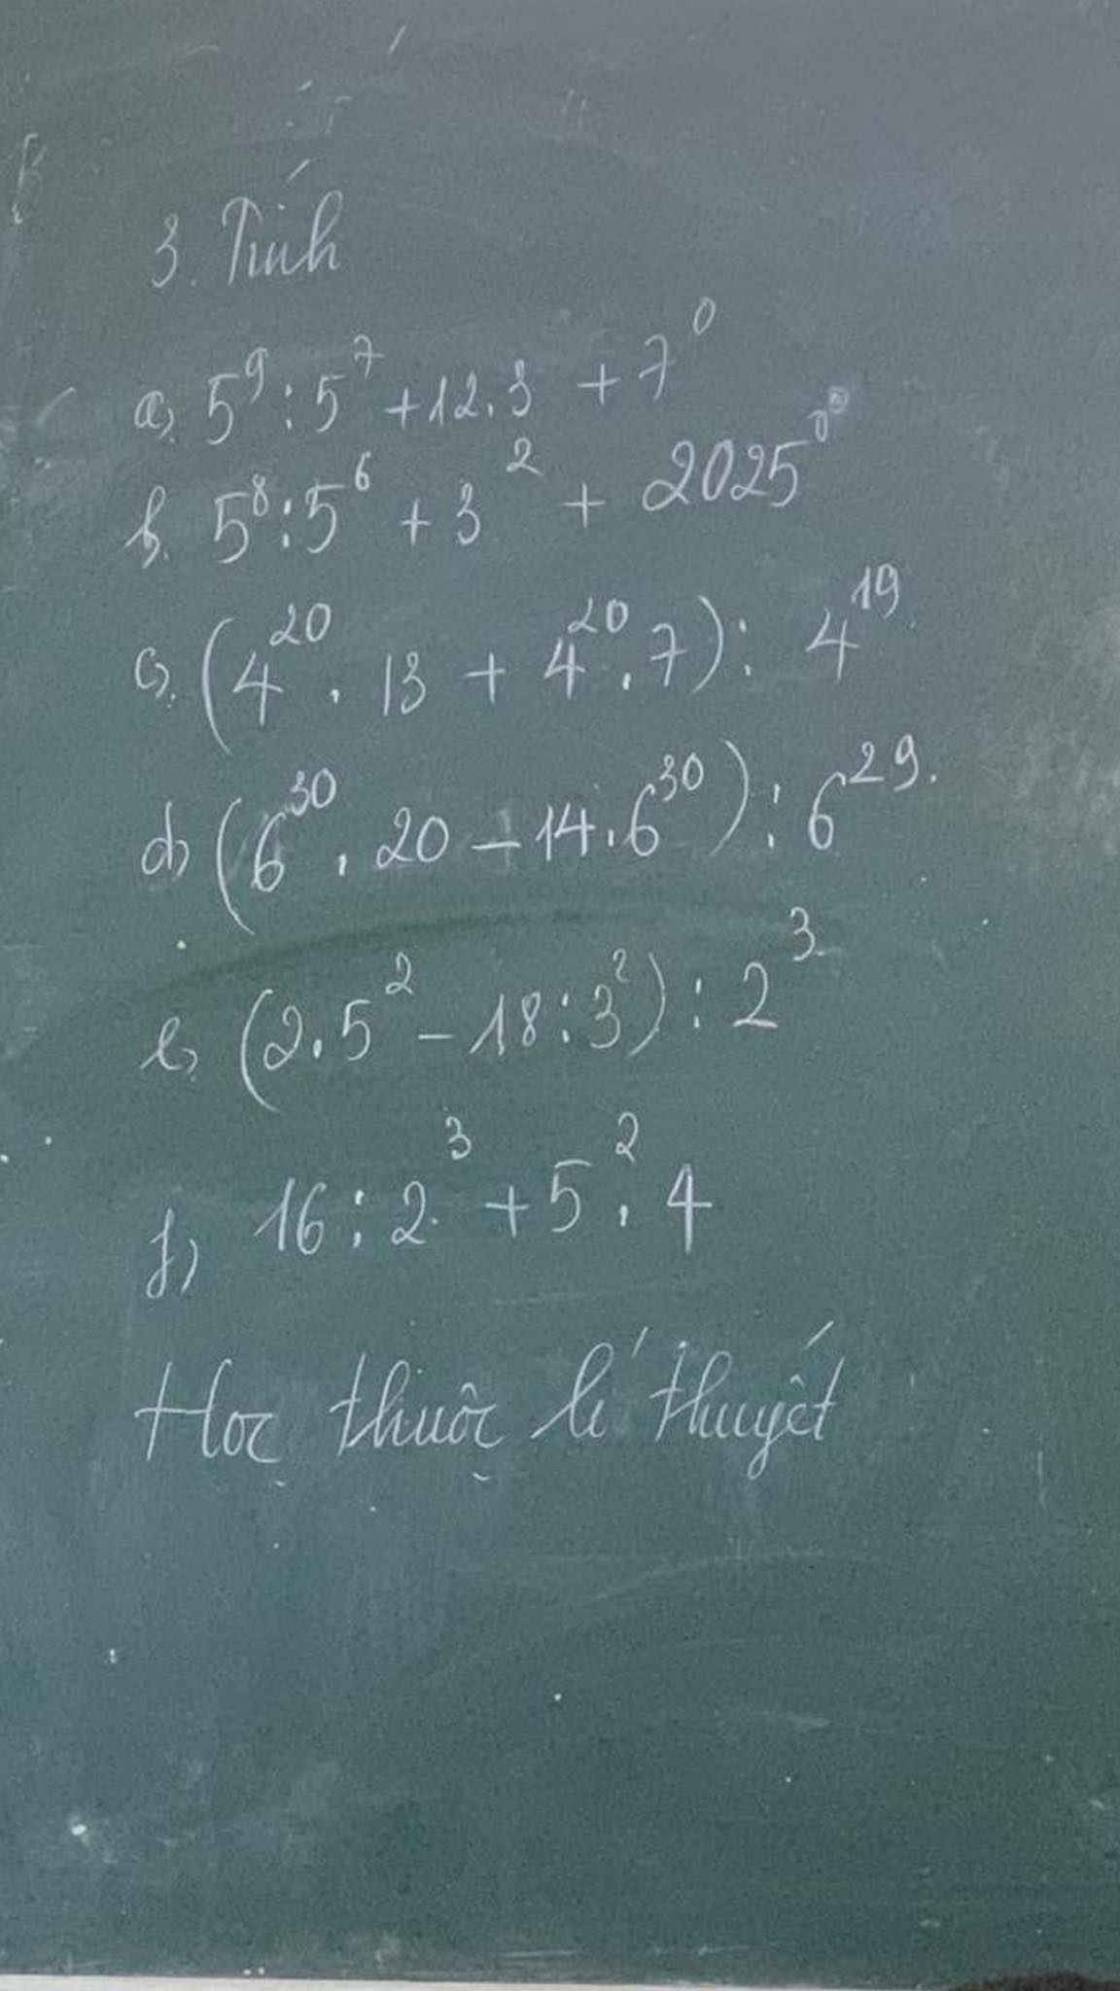 3. Tính
a, 5⁹ : 5⁷ + 12 . 3 + 7⁰
b. 5⁸ : 5⁶ + 3² + 2025⁰
c). (4²⁰ . 13 + 4²⁰ . 7) : 4¹⁹.
d) (6³⁰ . 20 - 14 . 6³⁰) : 6²⁹.
e, (2 . 5² - 18 : 3²) : 2³
f) 16 : 2³ + 5² . 4
Học thuộc lí thuyết